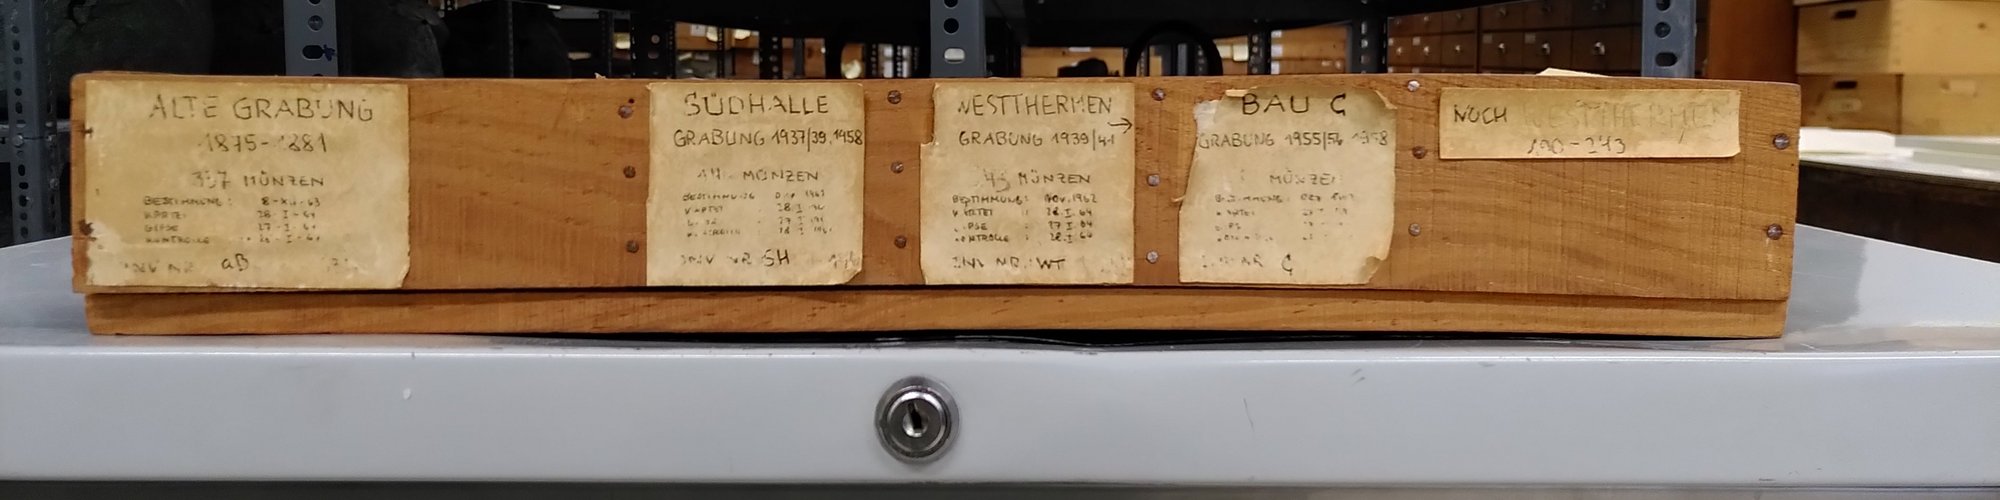 ALTE GRABUNG
1875-1881
337 MÜNZEN
BESTIMMUNG: 8-XII-63
KARTEI 28-I-64
GIPSE 27-I-64
KONTROLLE 28-I-64
INV NR aB
SÜDHALLE
GRABUNG 1937/39, 1958
MÜNZEN
BESTIMMUNG
KARTEI 28.I
27.I
28.I
INV NR SH
WESTTHERMEN
→
GRABUNG 1939/41
MÜNZEN
BESTIMMUNG: NOV. 1962
KARTEI : 28.I.64
GIPSE 27.I.64
KONTROLLE 28.I.64
INV NR.: WT
BAU C
GRABUNG 1955/56 1958
MÜNZEN
BESTIMMUNG:
KARTEI
NR C
NOCH WESTTHERMEN
190-243